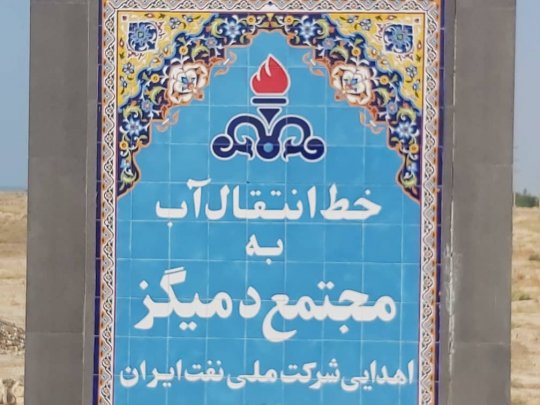 خط انتقال آب
به
مجتمع دمیگز
اهدایی شرکت ملی نفت ایران